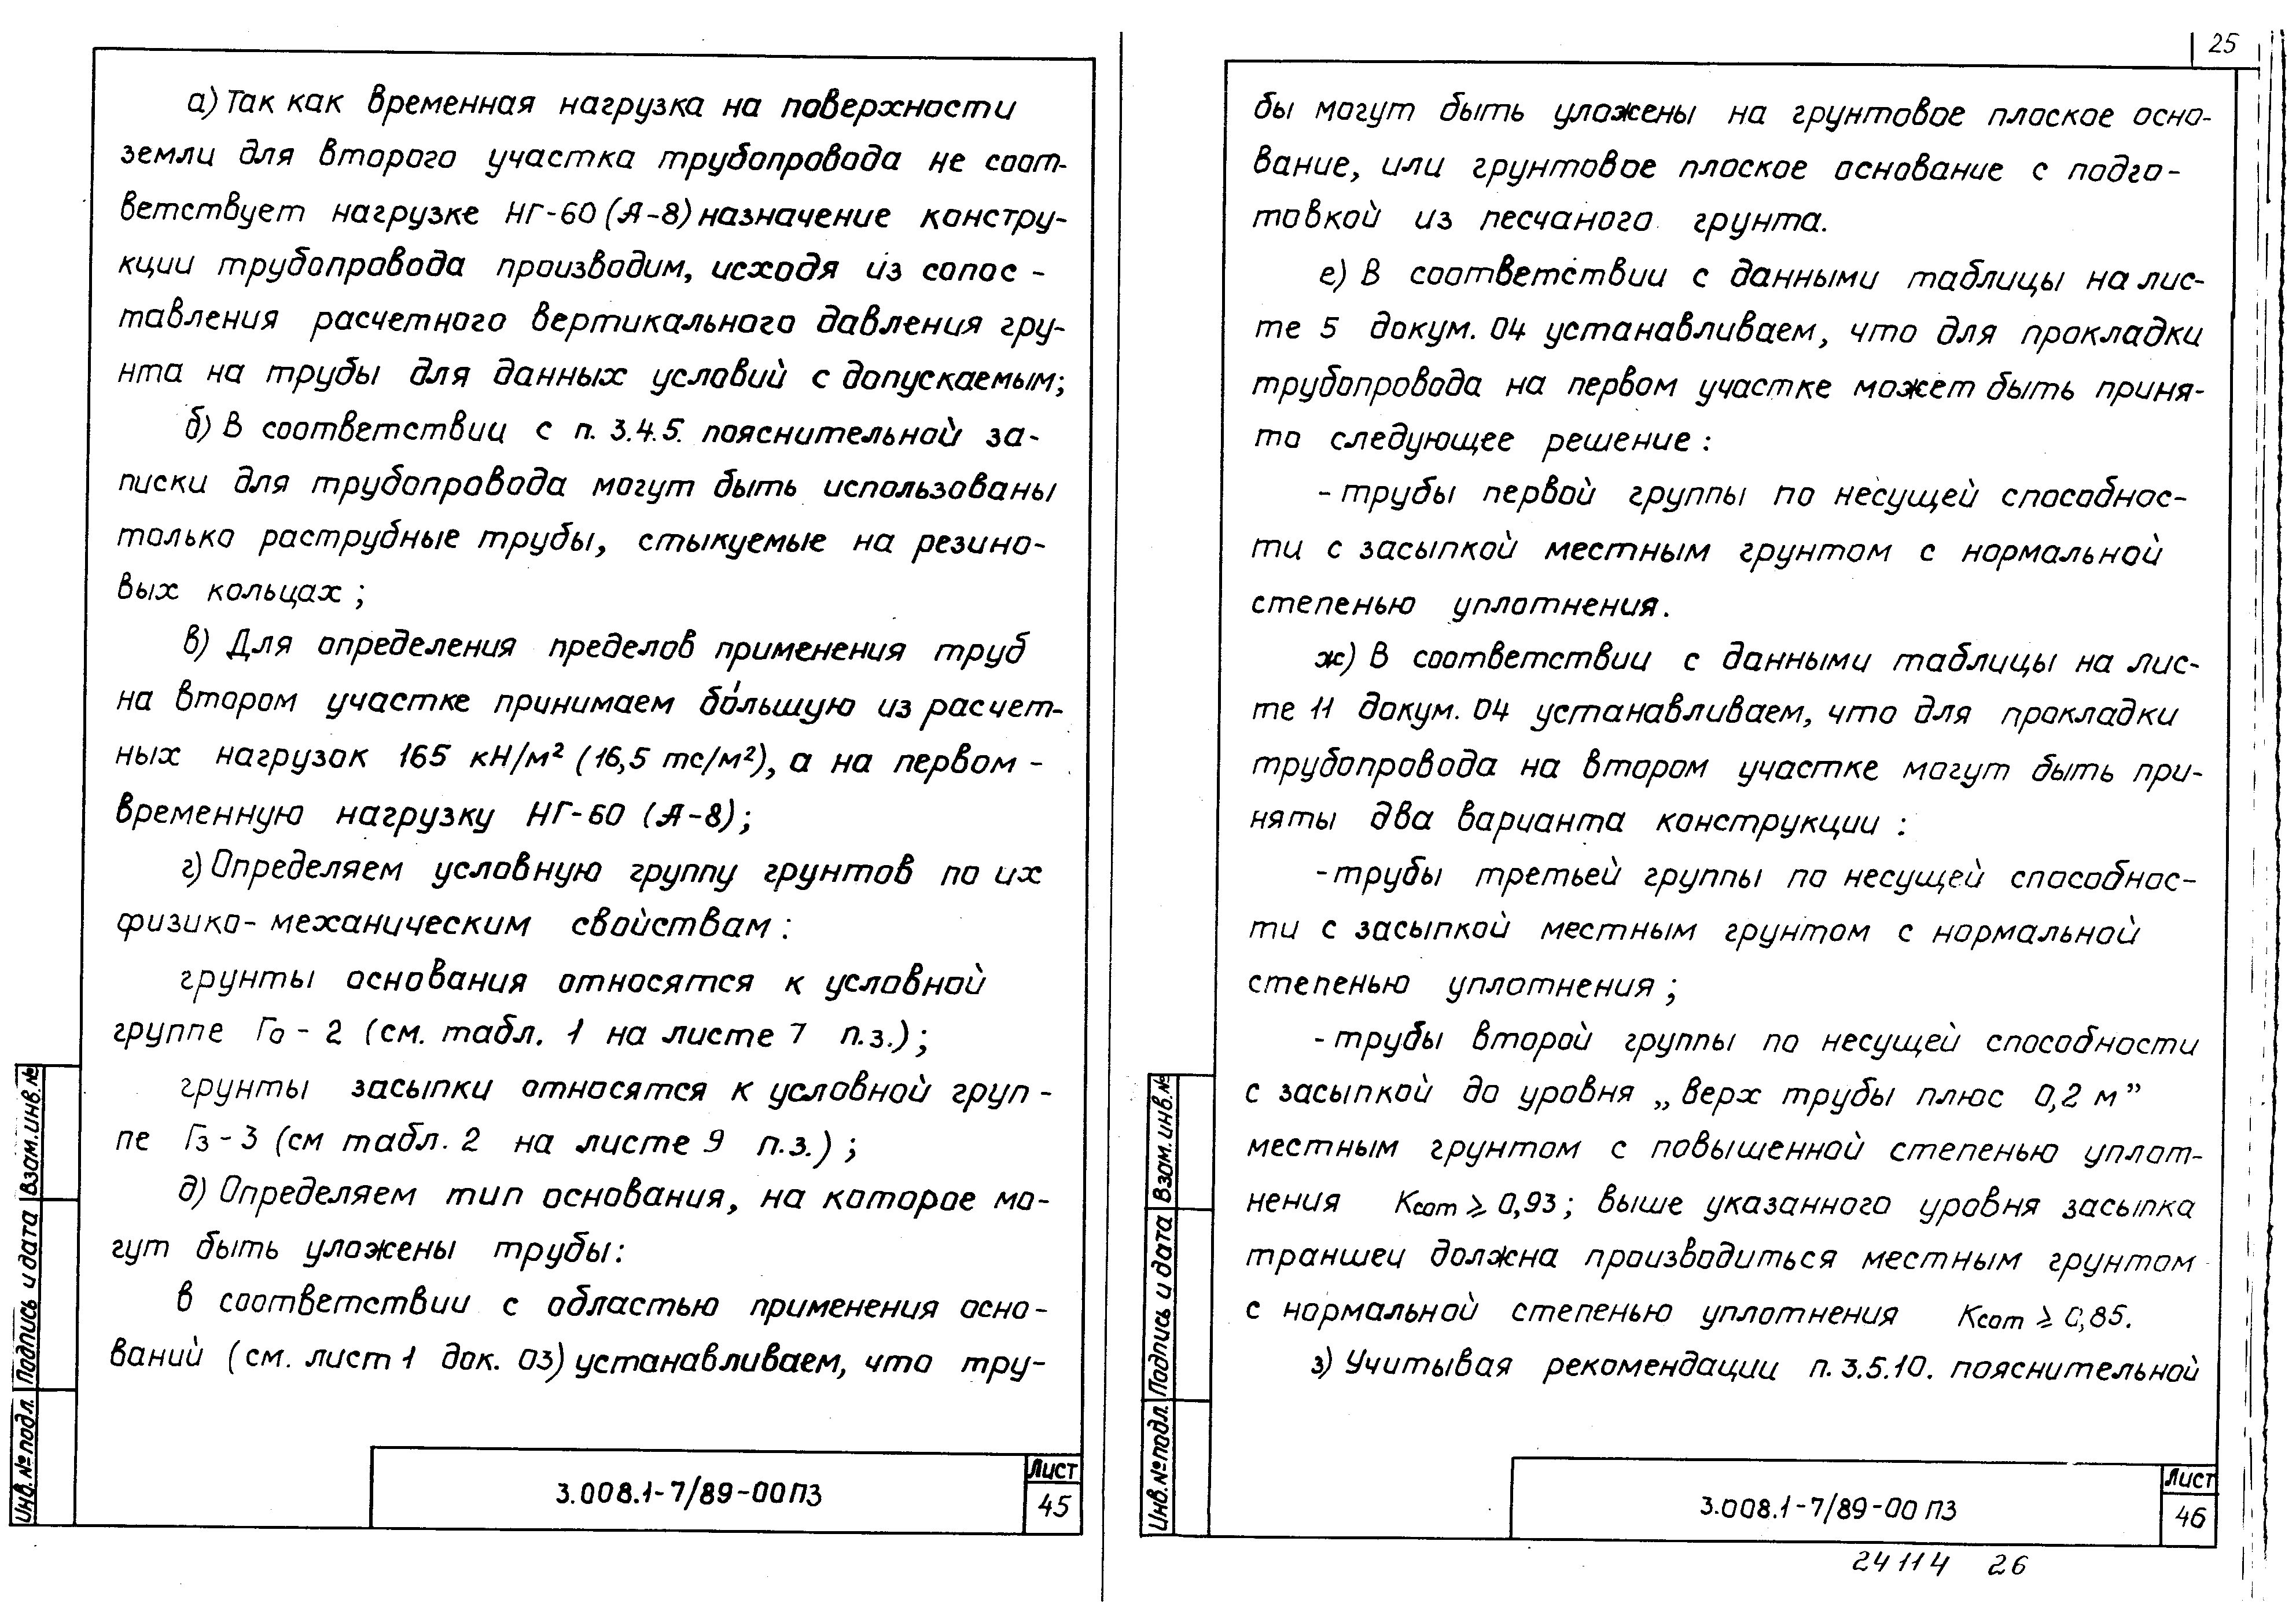 а) Так как временная нагрузка на поверхности
земли для второго участка трубопровода не соот-
ветствует нагрузке НГ-60 (А-8) назначение констру-
кции трубопровода производим, исходя из сопос-
тавления расчетного вертикального давления гру-
нта на трубы для данных условий с допускаемым;
б) В соответствии с п. 3.4.5. пояснительной за-
писки для трубопровода могут быть использованы
только раструбные трубы, стыкуемые на резино-
вых кольцах;
в) Для определения пределов применения труб
на втором участке принимаем бо́льшую из расчет-
ных нагрузок 165 кН/м² (16,5 тс/м²), а на первом -
временную нагрузку НГ-60 (А-8);
г) Определяем условную группу грунтов по их
физико-механическим свойствам:
грунты основания относятся к условной
группе Го-2 (см. табл. 1 на листе 7 п.з.);
грунты засыпки относятся к условной груп-
пе Гз-3 (см табл. 2 на листе 9 п.з.);
д) Определяем тип основания, на которое мо-
гут быть уложены трубы:
в соответствии с областью применения осно-
ваний (см. лист 1 док. 03) устанавливаем, что тру-
Инв.№подл. Подпись и дата Взам.инв.№
3.008.1-7/89-00ПЗ
Лист
45
25
бы могут быть уложены на грунтовое плоское осно-
вание, или грунтовое плоское основание с подго-
товкой из песчаного грунта.
е) В соответствии с данными таблицы на лис-
те 5 докум. 04 устанавливаем, что для прокладки
трубопровода на первом участке может быть приня-
то следующее решение:
- трубы первой группы по несущей способнос-
ти с засыпкой местным грунтом с нормальной
степенью уплотнения.
ж) В соответствии с данными таблицы на лис-
те 11 докум. 04 устанавливаем, что для прокладки
трубопровода на втором участке могут быть при-
няты два варианта конструкции:
- трубы третьей группы по несущей способнос-
ти с засыпкой местным грунтом с нормальной
степенью уплотнения;
- трубы второй группы по несущей способности
с засыпкой до уровня „верх трубы плюс 0,2 м”
местным грунтом с повышенной степенью уплот-
нения Ксот ⩾ 0,93; выше указанного уровня засыпка
траншеи должна производиться местным грунтом
с нормальной степенью уплотнения Ксот ⩾ 0,85.
з) Учитывая рекомендации п. 3.5.10. пояснительной
Инв.№подл. Подпись и дата Взам.инв.№
3.008.1-7/89-00 ПЗ
Лист
46
24114 26